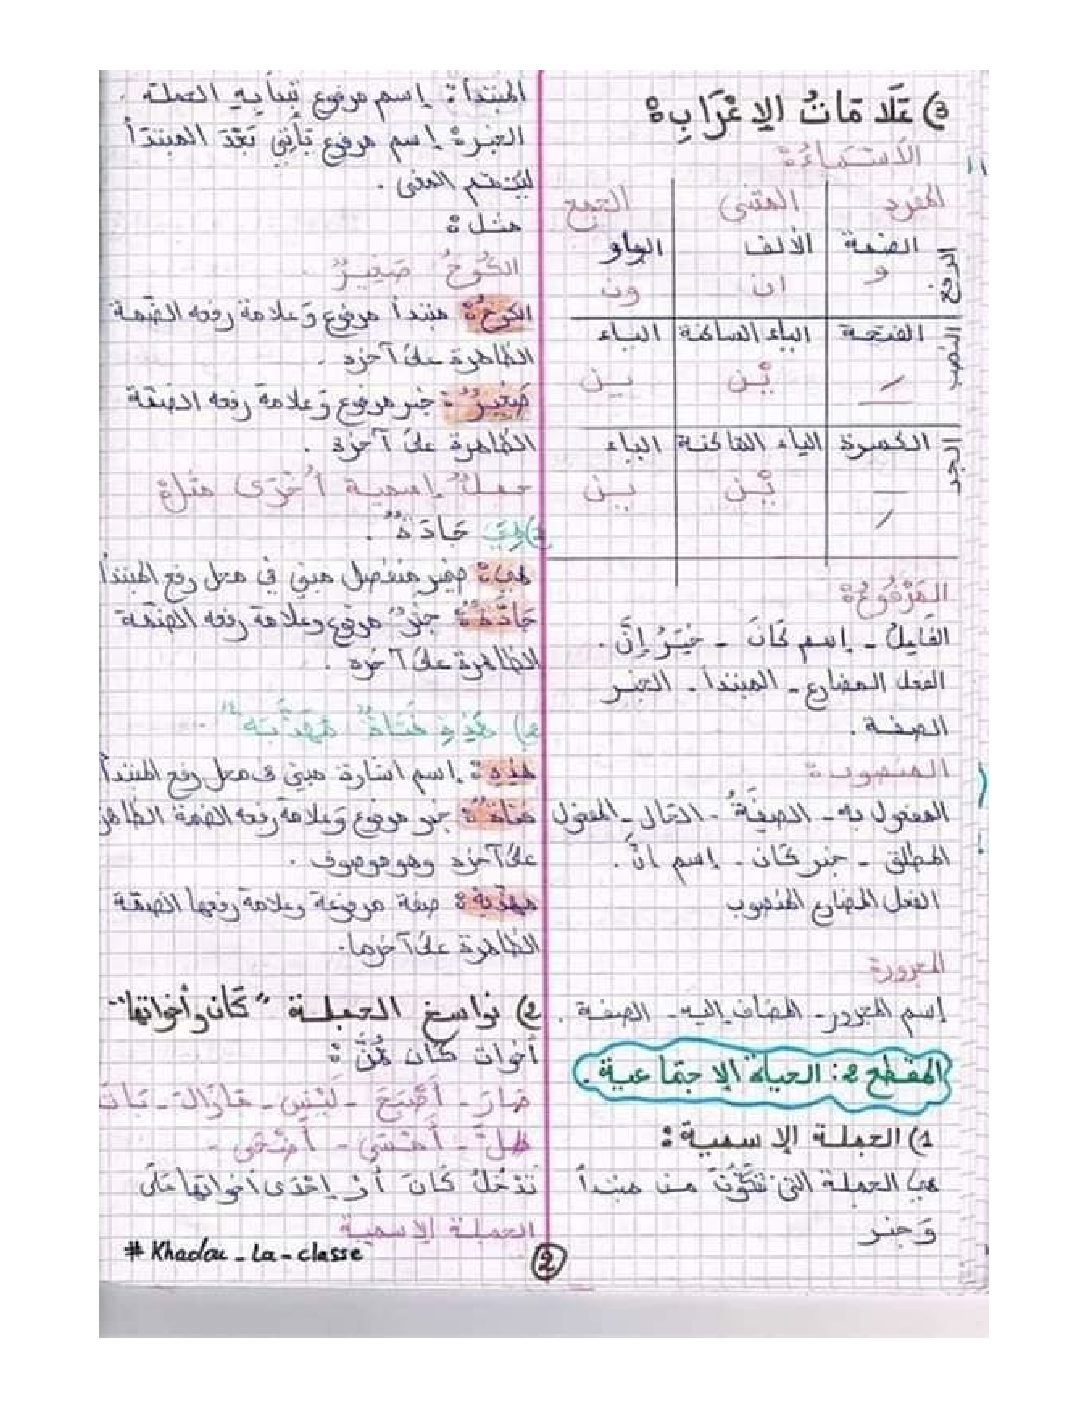 3) عَلَامَاتُ الإِعْرَابِ:
الأَسْمَاءُ:
المفرد المثنى الجمع
الرفع الضمة الألف الواو
و ان ون
النصب الفتحة الياء الساكنة الياء
يْن ين
الجر الكسرة الياء الساكنة الياء
يْن ين
المَرْفُوعُ:
الفَاعِلُ - إسم كَانَ - خَبَرُ إِنَّ.
الفعل المضارع - المبتدأ - الخبر
الصفة.
المنصوب:
المفعول به - الصِفَةُ - الحال - المفعول
المطلق - خبر كان - إسم انّ.
الفعل المضارع المنصوب
المجرورة
إسم المجرور - المضاف إليه - الصفة.
المقطع 2: الحياة الاجتماعية.
1) الجملة الإسمية:
هي الجملة التي تتكَوَّنُ من مبتدأ
وَخبر
المبتدأ: إسم مرفوع تبدأ به الجملة.
الخبر: إسم مرفوع يَأتي بَعْدَ المبتدَأ
ليتمم المعنى.
مثل:
الكُوخُ صَغِيرٌ.
الكوخُ: مبتدأ مرفوع وَعلامة رفعه الضّمة
الظّاهرة علىَ آخره.
صَغِيرٌ: خبر مرفوع وَعلامة رفعه الضّمّة
الظّاهرة علىَ آخره.
جملٌ إسمية أُخْرَى مثل:
1) هِيَ جَادَةٌ.
هي: ضمير منفصل مبني في محل رفع المبتدأ
جَادّةٌ: خبرٌ مرفوع وعلامة رفعه الضّمّة
الظّاهرة علىَ آخره.
2) هَذِهِ فَتَاةٌ مُهَذَّبَةٌ.
هذه: إسم اشارة مبني في محل رفع المبتدأ
فتاةٌ: خبر مرفوع وَعلامة رفعه الضمة الظاهر
علىَ آخره وهو موصوف.
مهذبة: صفة مرفوعة وعلامة رفعها الضمّة
الظّاهرة علىَ آخرها.
2) نواسخ الجملة "كَان وأخواتها"
أخوات كَان هُنَّ:
صَارَ - أَصْبَحَ - لَيْسَ - مَازَالَ - بَاتَ
ظلّ - أَمْسَى - أَضْحَى -
تَدْخُلُ كَانَ أَوْ إِحْدَى أخواتها عَلَى
الجملة الإسمية
# Khadou - La - classe
2